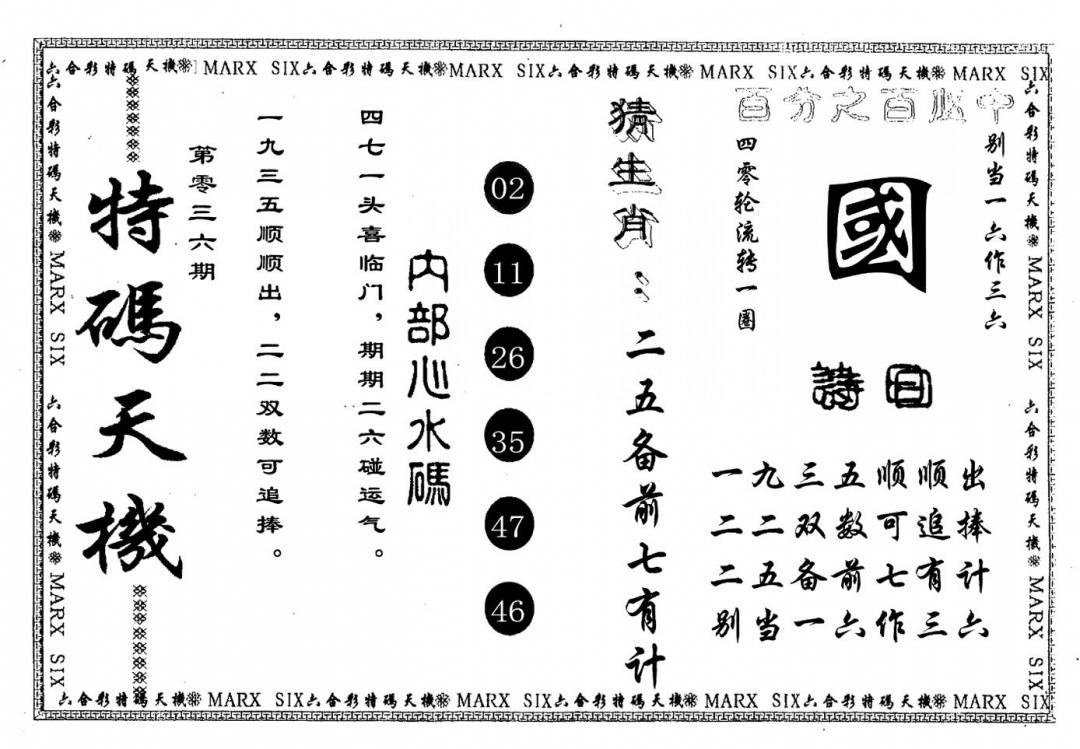 六合彩特碼天機 MARX SIX六合彩特碼天機MARX SIX六合彩特碼天機 MARX SIX六合彩特碼天機 MARX SIX
六合彩特碼天機 MARX SIX 六合彩特碼天機 MARX SIX
特碼天機
第零三六期
一九三五顺顺出，二二双数可追捧。
四七一头喜临门，期期二六碰运气。
内部心水碼
02
11
26
35
47
46
猜生肖：二五备前七有计
百分之百必中
别当一六作三六
國
四零轮流转一圈
詩曰
一九三五顺顺出
二二双数可追捧
二五备前七有计
别当一六作三六
六合彩特碼天機 MARX SIX 六合彩特碼天機 MARX SIX
六合彩特碼天機 MARX SIX六合彩特碼天機 MARX SIX六合彩特碼天機 MARX SIX六合彩特碼天機 MARX SIX